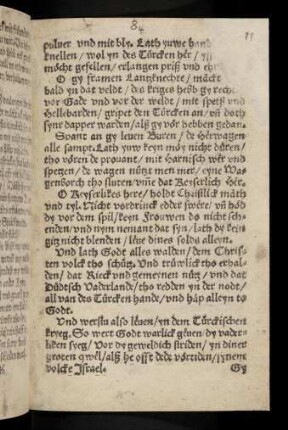 pulver vnd mit bly. Lath yuwe hand
knellen / wol yn des Türcken hêr / yn
môcht gefellen / erlangen priß vnd ehr
O gy framen Lantzknechte / mâckt
bald yn dat veldt / des kriges hebb gy recht
vor Gade vnd vor der weldt / mit spetz vnd
Hellebarden / gripet den Türcken an / vñ doth
synr dapper warden / alß gy vôr hebben gedan.
Spant an gy leuen Buren / de herwagen
alle sampt. Lath yuw keyn môy nicht dûren /
tho vôren de prouant / mit Harnisch wêr vnd
spetzen / de wagen nûtzt men mer / eyne Wa-
genborch tho sluten / mit dat Keyserlich hêr.
O Keyserlikes hêre / holdt Christlick mâth
vnd tyl. Nicht vordrinck edder swêre / vñ hôd
dy vor dem spil / keyn Frouwen do nicht sch-
enden / vnd nym nemant dat syn / lath dy key-
gig nicht blenden / lêne dines solds alleyn.
Vnd lath Godt alles walden / dem Chris-
ten volck tho schûtz. Vnd trûwlick tho erhal-
den / dat Rieck vnd gemeynen nûtz / vnd dat
Dûdtsch Vaderlande / tho redden yn der nodt /
all van des Türcken hande / vnd hâp alleyn to
Godt.
Vnd werstu also lêuen / yn dem Türckischen
kryeg. So wert Godt warlick gêuen / dy vader-
liken syeg / Vor dy geweldich striden / yn diner
groten qwêl / alß he offt dede vôrtiden / synem
volcke Israel.
Gy